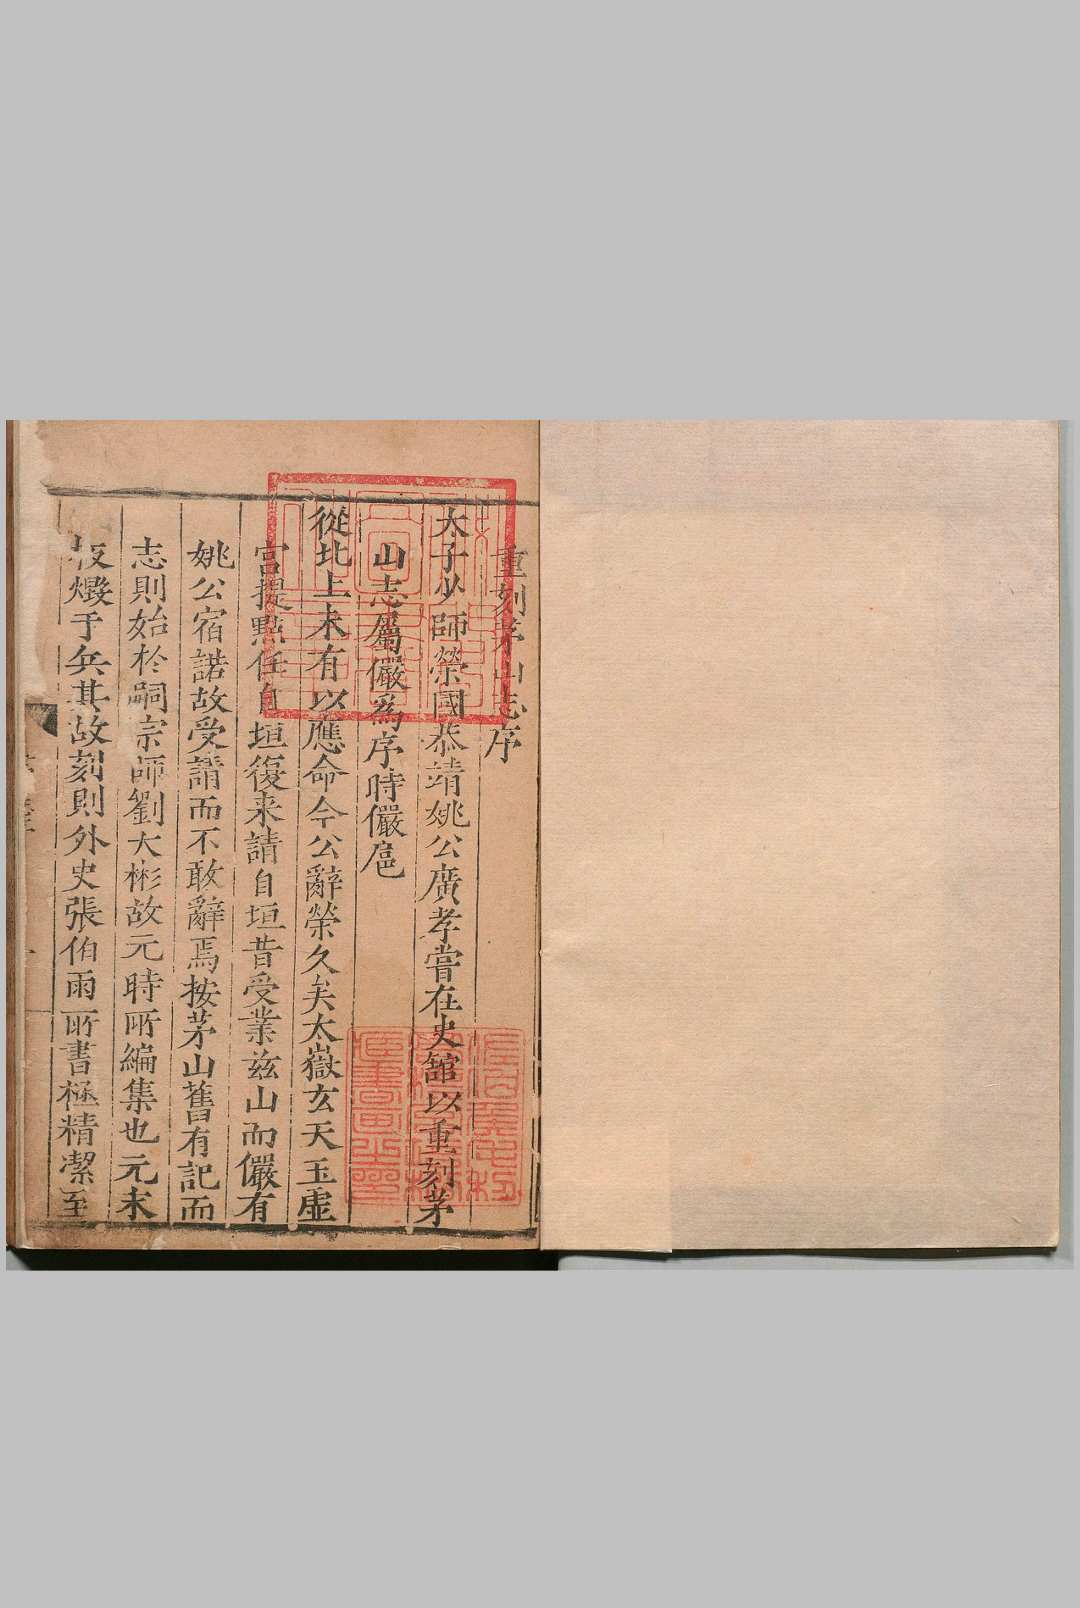 重刻茅山志序
太子少師榮國恭靖姚公廣孝嘗在史舘以重刻茅
山志屬儼爲序時儼扈
從北上未有以應命今公辭榮久矣太嶽玄天玉虛
宮提點任自垣復来請自垣昔受業茲山而儼有
姚公宿諾故受請而不敢辭焉按茅山舊有記而
志則始於嗣宗師劉大彬故元時所編集也元末
板燬于兵其故刻則外史張伯雨所書極精潔至